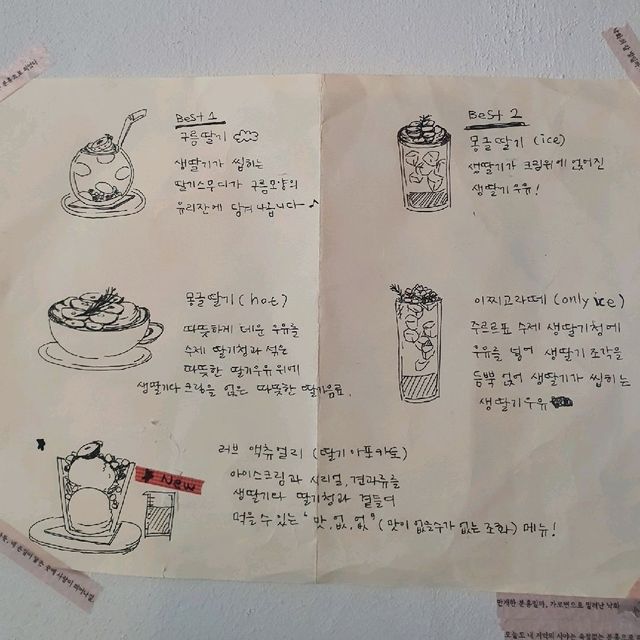 Best 1
구름딸기
생딸기가 씹히는
딸기스무디가 구름모양의
유리잔에 담겨나옵니다~♪
Best 2
몽글딸기 (ice)
생딸기가 크림위에 얹어진
생딸기우유!
몽글딸기 (hot)
따뜻하게 데운 우유를
수제 딸기청과 섞은
따뜻한 딸기우유 위에
생딸기와 크림을 얹은 따뜻한 딸기음료.
이찌고라떼 (only ice)
주르르표 수제 생딸기청에
우유를 넣어 생딸기 조각을
듬뿍 얹어 생딸기가 씹히는
생딸기우유
New
러브 액츄얼리 (딸기아포카토)
아이스크림과 시리얼, 견과류를
생딸기와 딸기청과 곁들여
먹을 수 있는 "맛.없.없" (맛이 없을수가 없는 조화) 메뉴!
만개한 분홍길까, 가로변으로 밀려난 낙화